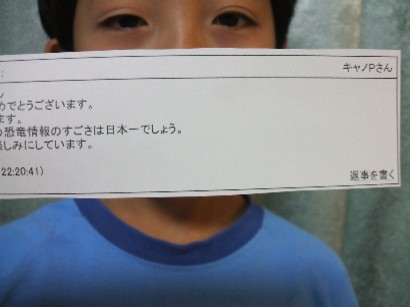 キャノPさん
めでとうございます。
ます。
恐竜情報のすごさは日本一でしょう。
しみにしています。
22:20:41)
返事を書く